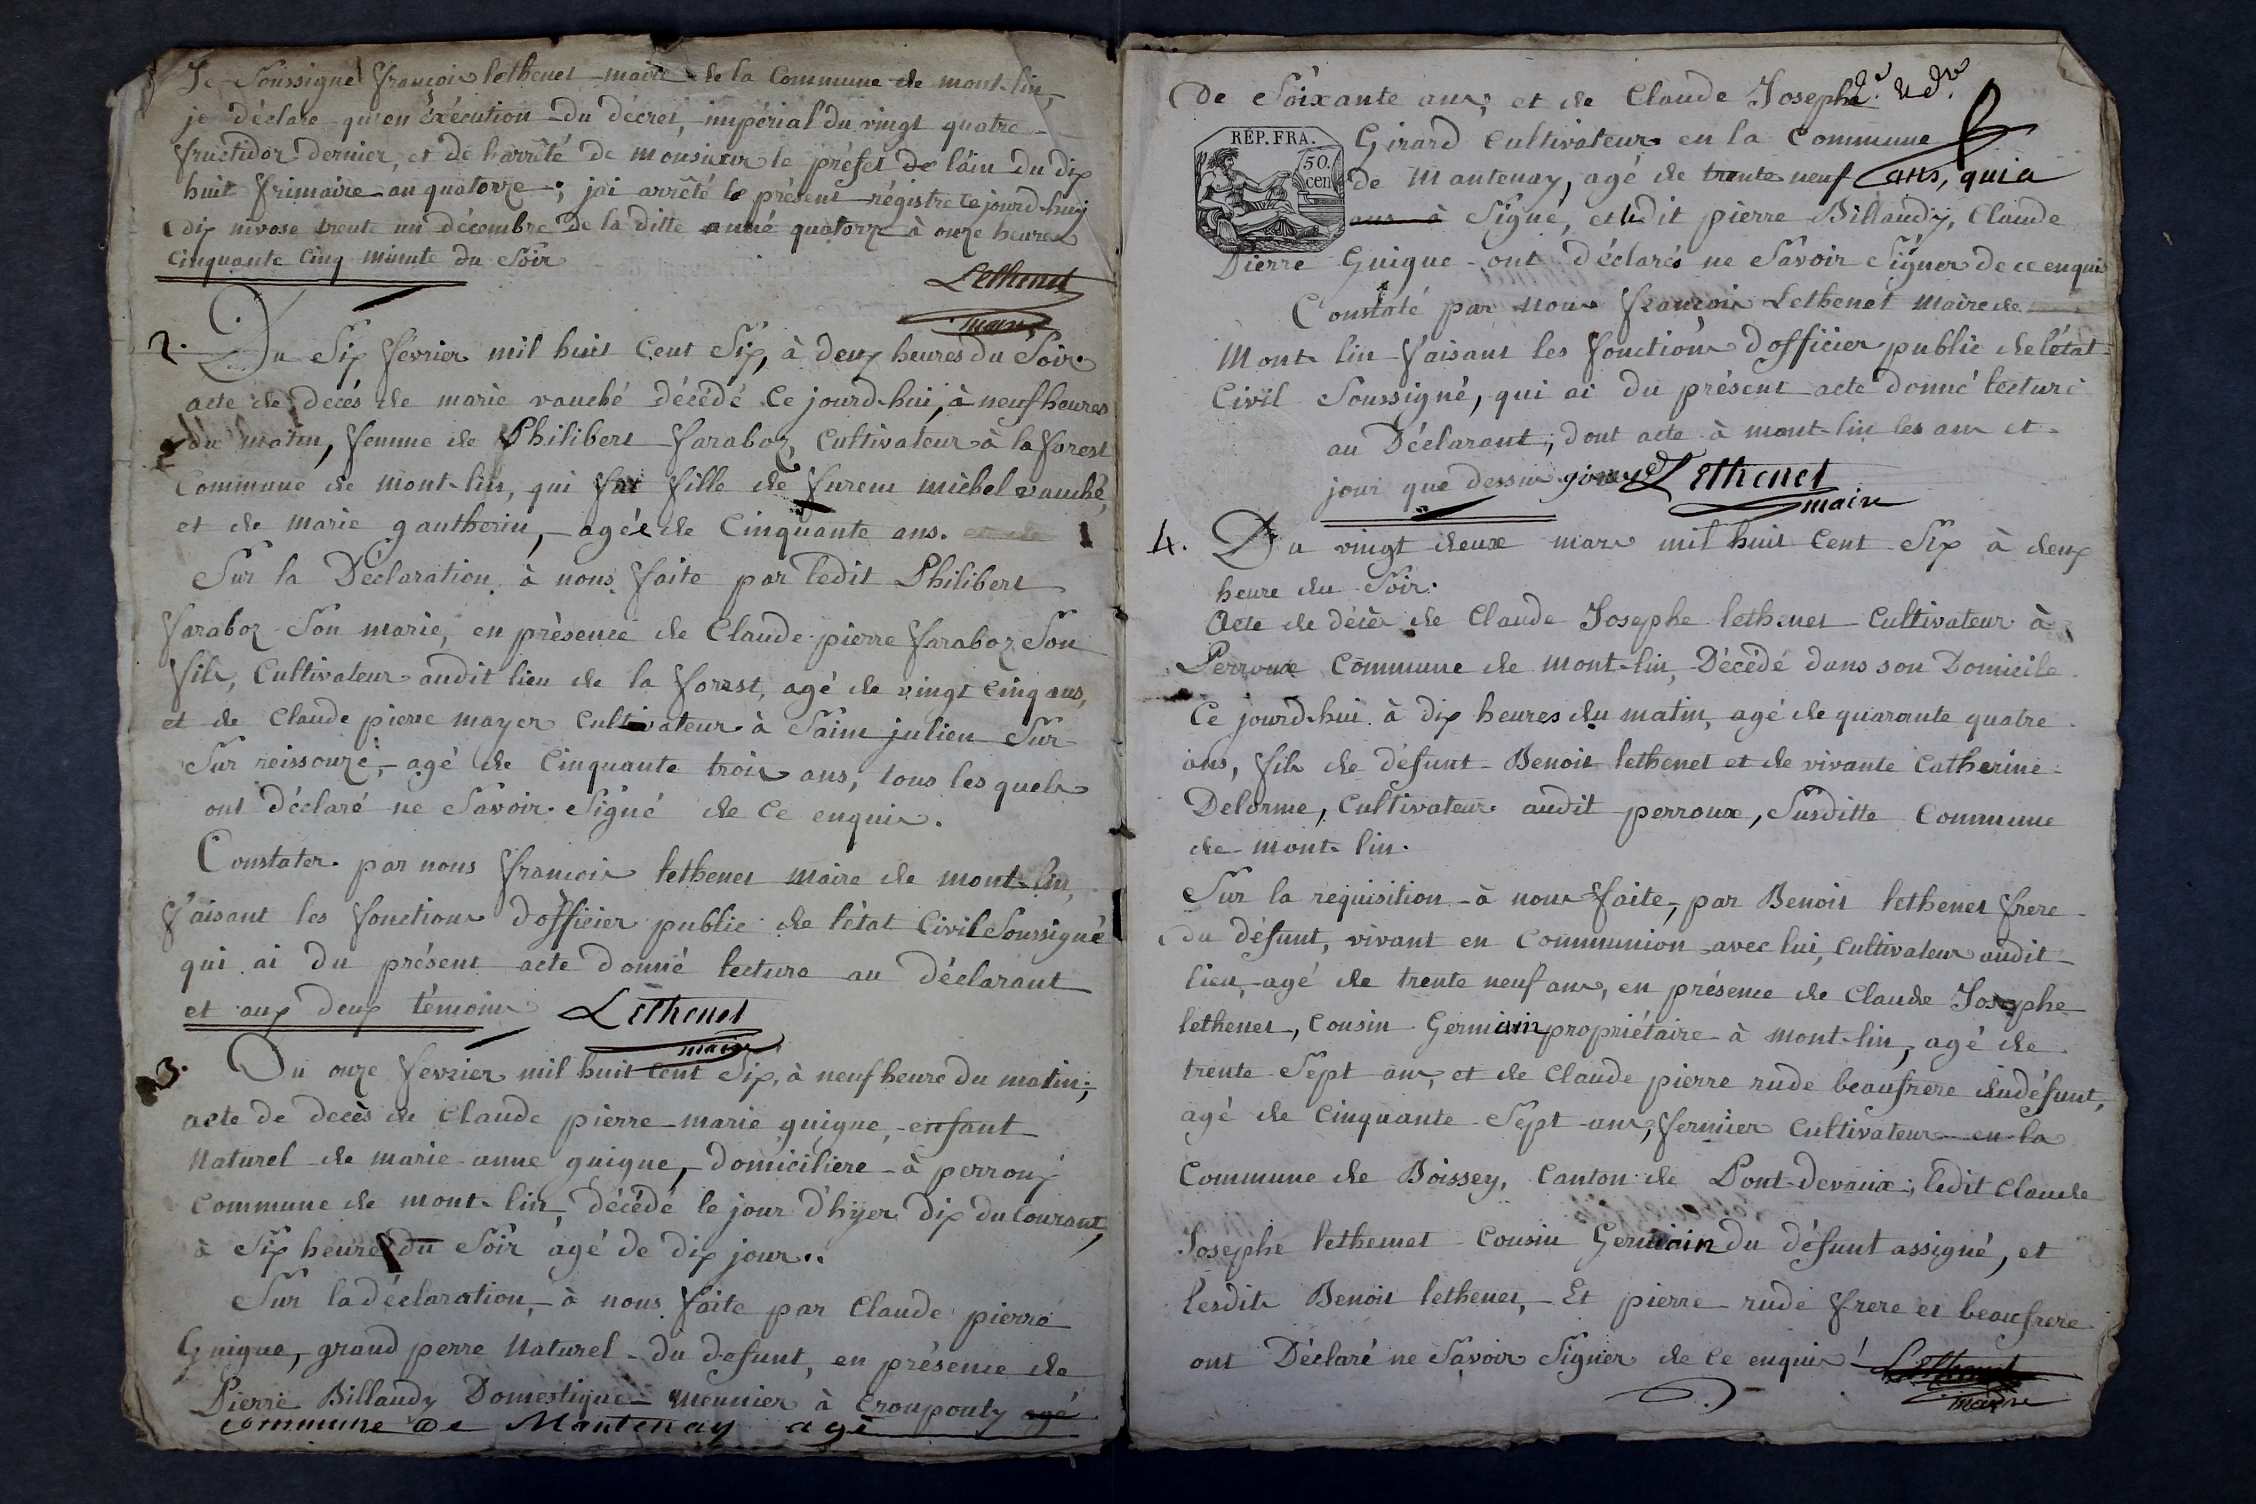 Je Soussigné françois lethenet maire de la Commune de mont-lin,
je déclare qu'en éxécution du décret, impérial du vingt quatre
fructidor dernier, et de l'arrêté de monsieur le préfet de l'ain du dix
huit frimaire an quatorze; jai arrêté le présent régistre ce jourd-huy
dix nivose trente un décembre de la ditte anné quatorze à onze heures
cinquante cinq minute du Soir
Lethenet
maire
2. Du Six février mil huit Cent Six, à deux heures du Soir.
acte de décés de marie vauché décédé Ce jourd-hui, à neuf heures
du matin, femme de Philibert faraboz, Cultivateur à la forest
Commune de mont-lin, qui fut fille de fureut michel vauché,
et de marie gautherin, agée de Cinquante ans.
Sur la Déclaration à nous faite par ledit Philibert
faraboz Son marie, en présence de Claude pierre faraboz Son
fils, Cultivateur audit lieu de la forest, agé de vingt cinq ans,
et de Claude pierre mayer Cultivateur à Saint julien Sur
Sur reissouze, agé de Cinquante trois ans, tous les quels
ont déclaré ne Savoir Signé de Ce enquis.
Constater par nous françois lethenet maire de mont-lin,
faisant les fonctions d'officier public de l'état Civil Soussigné
qui ai du présent acte donné lecture au déclarant
et aux deux témoins Lethenet
maire
3. Du onze fevrier mil huit cent Six, à neuf heure du matin;
acte de decès de Claude pierre marie guigue, enfant
Naturel de marie anne guigue, domicilière à perroux
Commune de mont-lin, décédé le jour d'hyer dix du Courant,
à Six heures du Soir agé de dix jours.
Sur la déclaration, à nous faite par Claude pierre
Guigue, grand perre Naturel du defunt, en présence de
Pierre Billaudy Domestique meunier à Crouponty agé
commune de Mantenay agé
de Soixante ans; et de Claude Joseph
REP. FRA.
50. cen
Girard Cultivateur en la Commune
de Mantenay, agé de trente neuf ans, qui a
ans à Signé, et ledit pierre Billaudy, Claude
Pierre Guigue ont déclarés ne Savoir Signer de ce enquis
Constaté par nous françois Lethenet maire de
Mont-lin faisant les fonctions d'officier public de l'état
Civil Soussigné, qui ai du présent acte donné lecture
au Déclarant; dont acte à mont-lin les an et
jour que dessus Lethenet
maire
4. Du vingt deux mars mil huit Cent Six à deux
heure du Soir.
Acte de décès de Claude Josephe lethenet Cultivateur à
Perroux Commune de mont-lin, Décédé dans son Domicile
Ce jourd-hui à dix heures du matin, agé de quarante quatre
ans, fils de défunt Benoit lethenet et de vivante Catherine
Delorme, Cultivateur audit perroux, Susditte Commune
de mont-lin.
Sur la requisition à nous faite, par Benoit lethenet frere
du défunt, vivant en Communion avec lui, Cultivateur audit
lieu, agé de trente neuf ans, en présence de Claude Josephe
lethenet, Cousin Germain propriétaire à mont-lin, agé de
trente Sept ans, et de Claude pierre rude beaufrere du défunt,
agé de Cinquante Sept ans, fermier Cultivateur en la
Commune de Boissey, Canton de Pont-devaux; ledit Claude
Josephe lethenet Cousin Germain du défunt assigné, et
lesdits Benoit lethenet, Et pierre rude frere et beaufrere
ont Déclaré ne Savoir Signer de Ce enquis Lethenet
maire